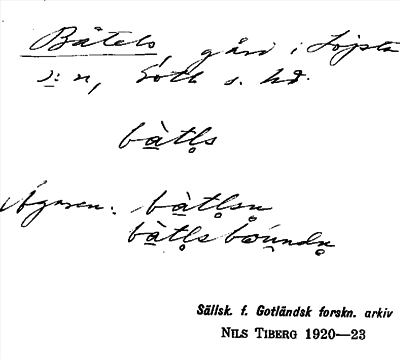 Båtels, gård i Lojsta
s:n, Gotl. s. hd.
bà̱tl̥s
Ägaren: bà̱tl̥sn̥
bà̱tl̥sbóu̱ndn̥
Sällsk. f. Gotländsk forskn. arkiv
NILS TIBERG 1920—23